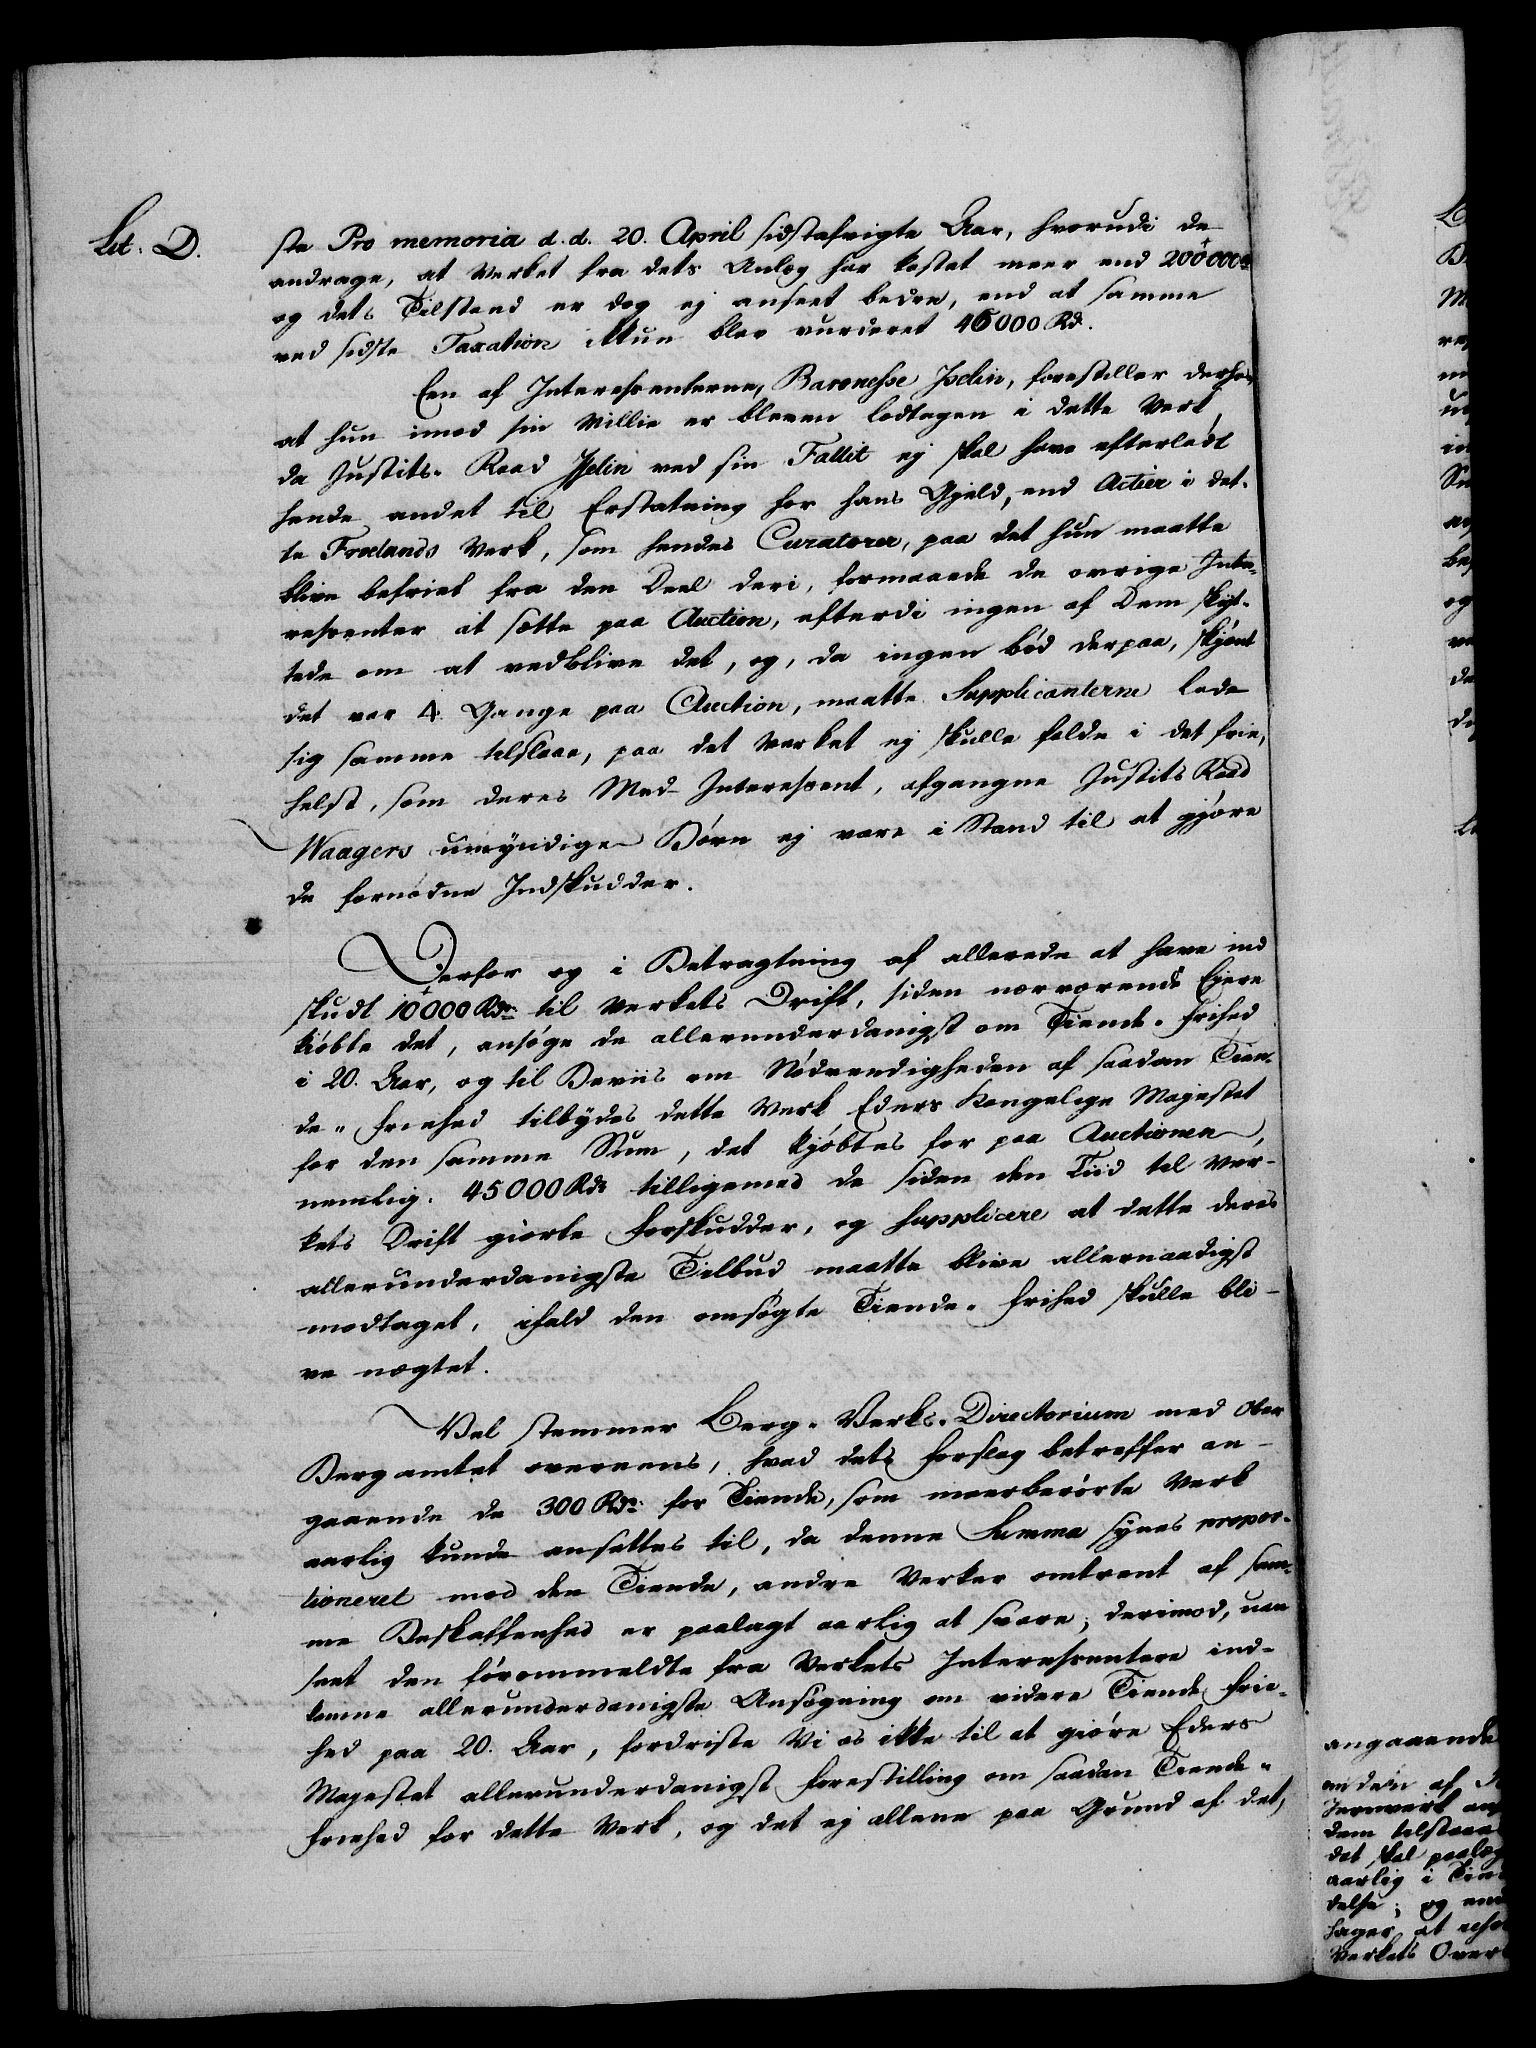 Lit: D.
ste Pro memoria d. d. 20. April sidstafvigte Aar, hvorudi de
andrage, at Verket fra dets Anlæg har kostet meer end 200000 Rd
og dets Tilstand er dog ej anseet bedre, end at samme
ved sidste Taxation ikkun blev vurderet 46000 Rd.
Een af Interessenterne, Baronesse Iselin, forestiller derhos,
at hun imod sin Villie er bleven lodtagen i dette Verk,
da Justits-Raad Iselin ved sin Fallit ej skal have efterladt
hende andet til Erstatning for hans Gjæld, end Actier i det-
te Frolands Verk, som hendes Curatorer, paa det hun maatte
blive befriet fra den Deel deri, formaaede de øvrige Inte-
ressenter at sætte paa Auction, efterdi ingen af Dem skjøt-
tede om at vedblive det, og, da ingen bød derpaa, skjønt
det var 4 Gange paa Auction, maatte Supplicanterne lade
sig samme tilslaae, paa det Verket ej skulle falde i det frie,
helst, som deres Med-Interessent, afgangne Justits Raad
Waagers umyndige Børn ej vare i Stand til at gjøre
de fornødne Indskudder.
Derfor og i Betragtning af allerede at have ind
skudt 10000 Rdr til Verkets Drift, siden nærværende Ejere
kiøbte det, ansøge de allerunderdanigst om Tiende-Frihed
i 20. Aar, og til Beviis om Nødvendigheden af saadan Tien-
de-Friehed tilbydes dette Verk Eders Kongelige Majestæt
for den samme Sum, det kjøbtes for paa Auctionen,
nemlig. 45000 Rdr tilligemed de siden den Tiid til Ver-
kets Drift giorte Forskudder, og supplicere at dette deres
allerunderdanigste Tilbud maatte blive allernaadigst
modtaget, ifald den ansøgte Tiende-Frihed skulle bli-
ve nægtet.
Vel stemmer Berg-Verks-Directorium med Ober
Bergamtet overeens, hvad dets Forslag betreffer an-
gaaende de 300 Rdr: for Tiende, som meerberørte Verk
aarlig kunde ansættes til, da denne Summa synes propor-
tioneret mod den Tiende, andre Verker omtrent af sam-
me Beskaffenhed er paalagt aarlig at svare; derimod, uan
seet den førommeldte fra Verkets Interessentere ind-
komne allerunderdanigste Ansøgning om videre Tiende Frie-
hed paa 20. Aar, fordriste Vi os ikke til at giøre Eders
Majestæt allerunderdanigst Forestilling om saadan Tiende-
friehed for dette Verk, og det ej allene paa Grund af det,
angaaende
anden af
Jernverk
dem tilstaaed
det skal paalæg
aarlig i Tien
delse; og
sager at
Verkets Over